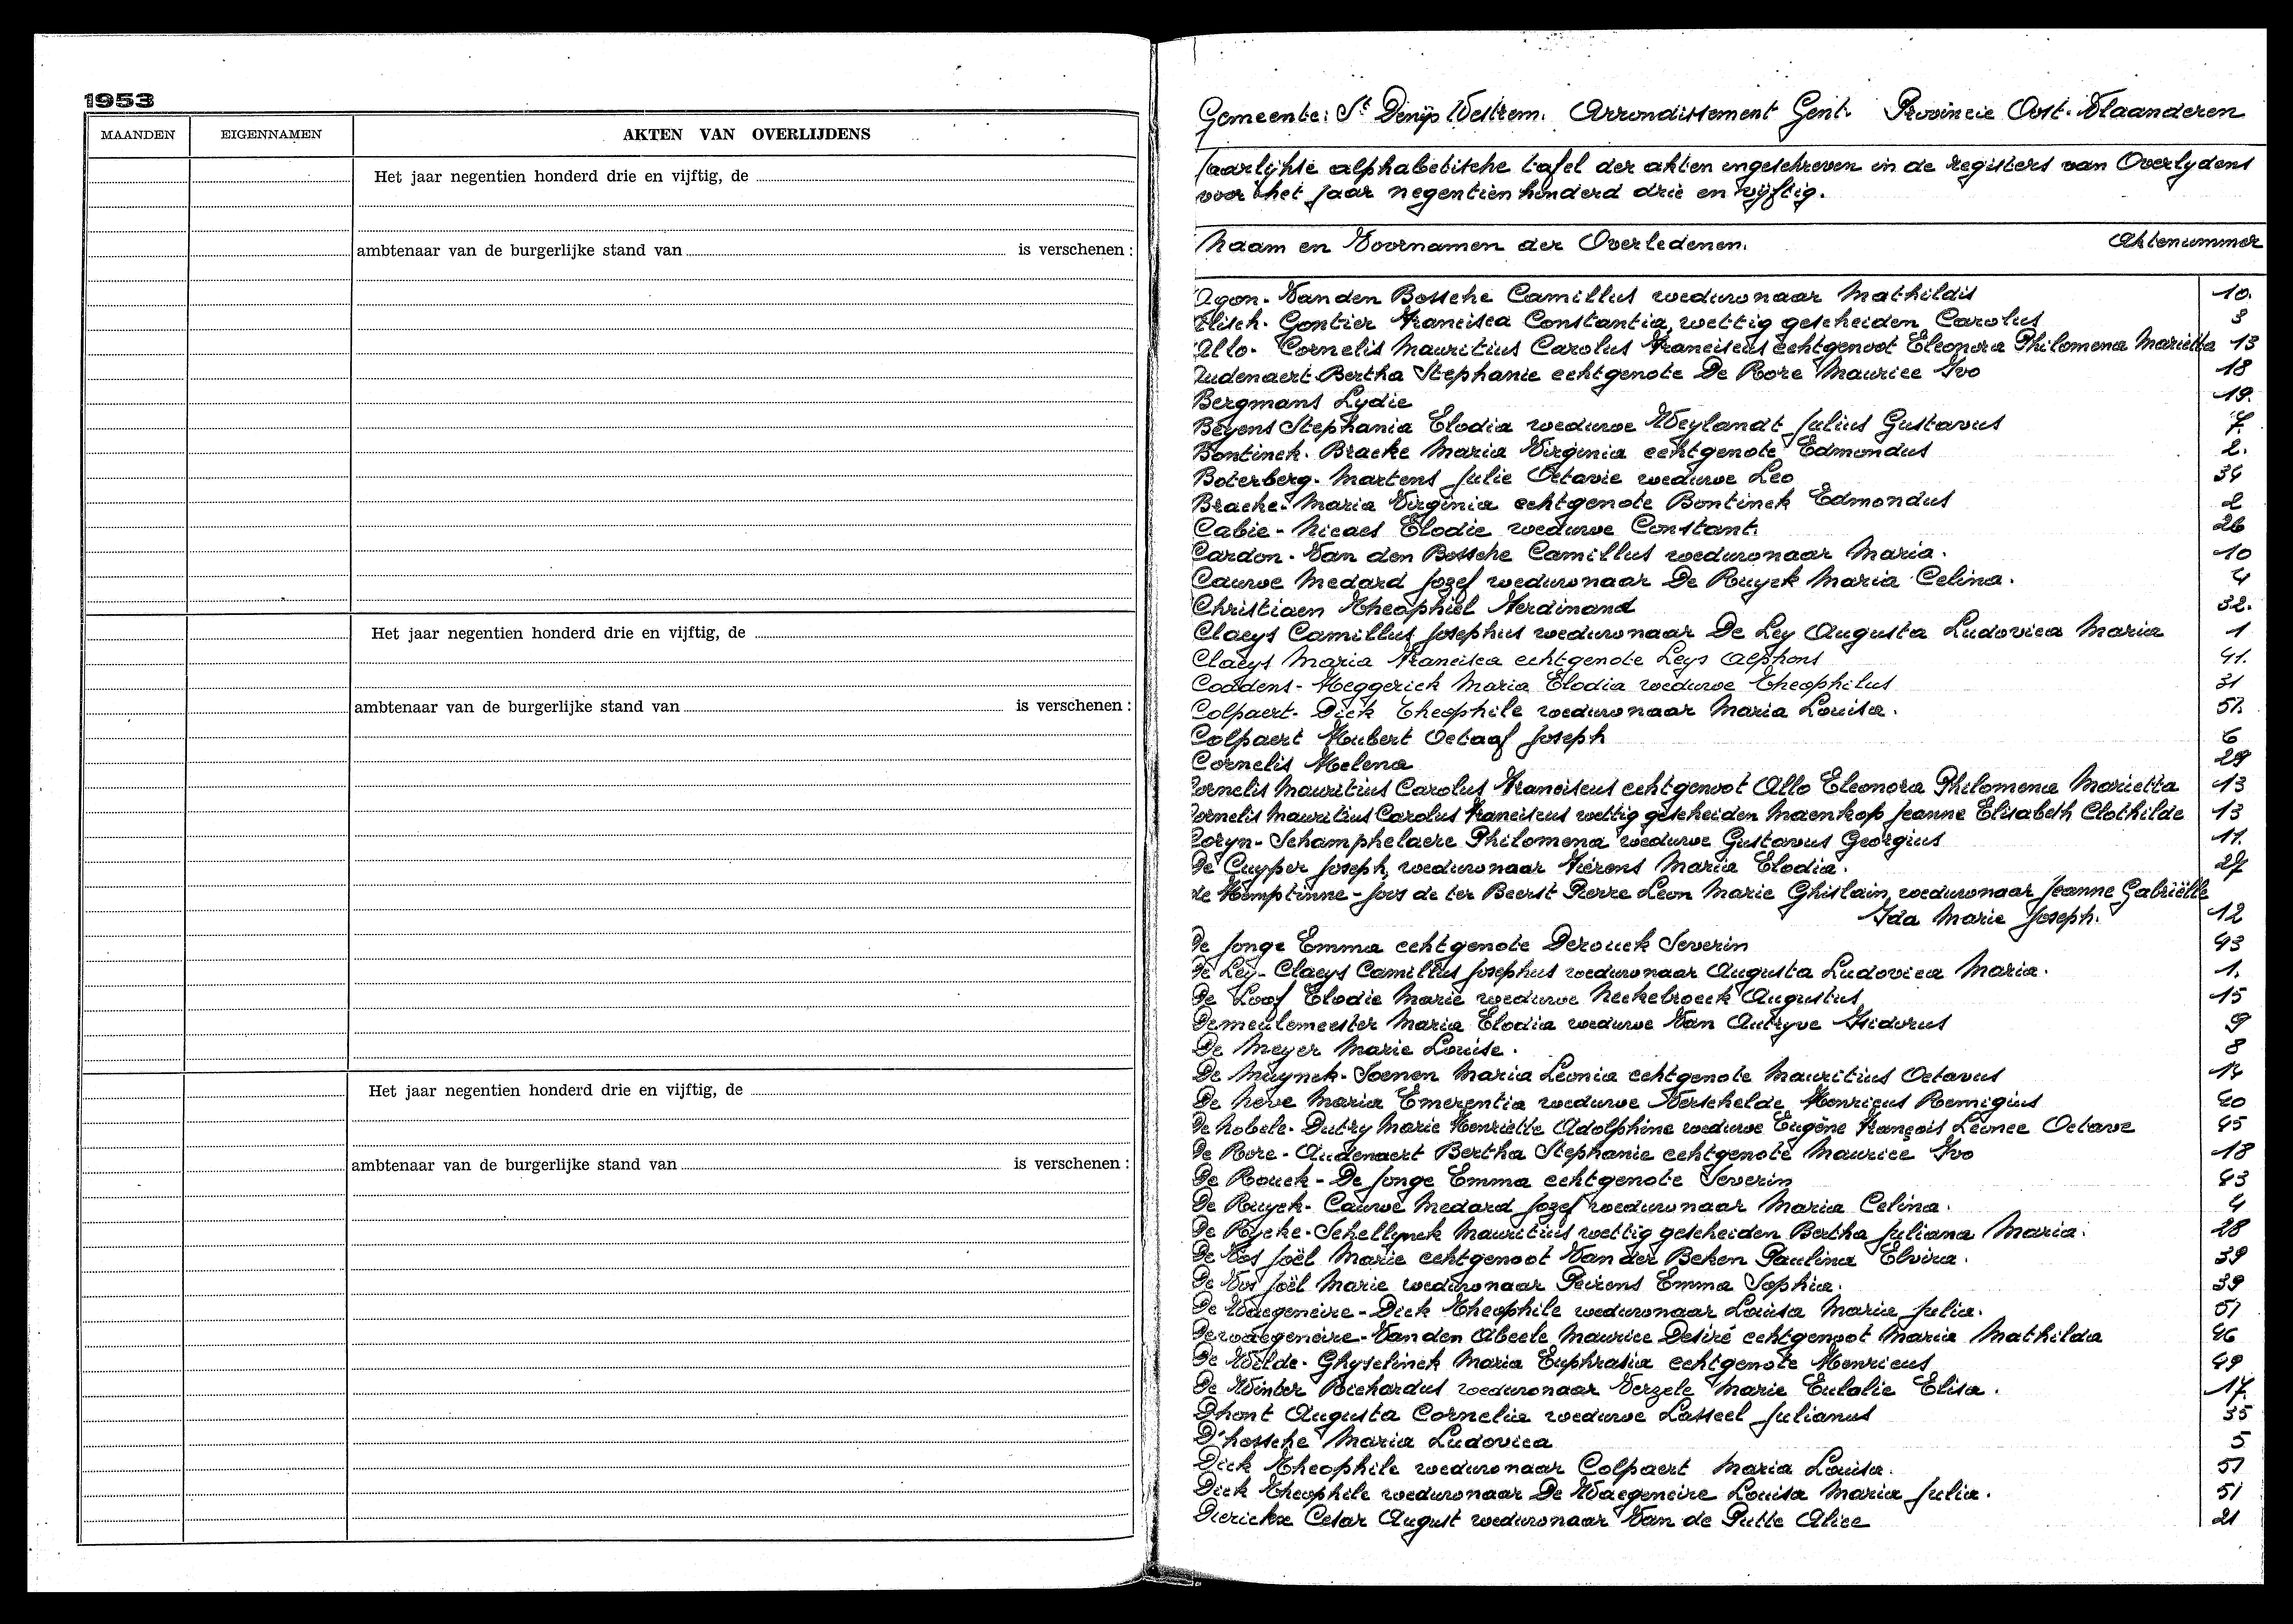 1953
MAANDEN EIGENNAMEN AKTEN VAN OVERLIJDENS
Het jaar negentien honderd drie en vijftig, de
ambtenaar van de burgerlijke stand van is verschenen :
Het jaar negentien honderd drie en vijftig, de
ambtenaar van de burgerlijke stand van is verschenen :
Het jaar negentien honderd drie en vijftig, de
ambtenaar van de burgerlijke stand van is verschenen :
Gemeente: St Denijs Westrem. Arrondissement Gent. Provincie Oost-Vlaanderen
Jaarlijkse alphabetische tafel der akten ingeschreven in de registers van Overlydens
voor het jaar negentien honderd drie en vijftig.
Naam en Voornamen der Overledenen. Aktenummer
Agon - Van den Bossche Camillus weduwnaar Mathildis 10.
Gontier Francisca Constantia, wettig gescheiden Carolus 3
Allo - Cornelis Mauritius Carolus Franciscus echtgenoot Eleonora Philomena Marietta 13
Audenaert Bertha Stephanie echtgenote De Rore Maurice Ivo 18
Bergmans Lydie 19.
Beyens Stephania Elodia weduwe Weylandt Julius Gustavus 7.
Bontinck - Bracke Maria Virginia echtgenote Edmondus 2.
Boterberg - Martens Julie Octavie weduwe Leo 34
Bracke - Maria Virginia echtgenote Bontinck Edmondus 2
Cabie - Nicaes Elodie weduwe Constant. 26
Cardon - Van den Bossche Camillus weduwnaar Maria. 10
Cauwe Medard Jozef weduwnaar De Ruyck Maria Celina. 4
Christiaen Theophiel Ferdinand 32.
Claeys Camillus Josephus weduwnaar De Ley Augusta Ludovica Maria 1
Claeys Maria Francisca echtgenote Leys Alphons 41.
Coddens - Heggerick Maria Elodia weduwe Theophilus 31
Colpaert - Dick Theophile weduwnaar Maria Louisa. 51.
Colpaert Hubert Octaaf Joseph 6
Cornelis Helena 29
Cornelis Mauritius Carolus Franciscus echtgenoot Allo Eleonora Philomena Marietta 13
Cornelis Mauritius Carolus Franciscus wettig gescheiden Maenkop Jeanne Elisabeth Clothilde 13
Coryn - Schamphelaere Philomena weduwe Gustavus Georgius 11.
De Cuyper Joseph, weduwnaar Fierens Maria Elodia. 27
de Hemptinne - Joos de ter Beerst Pierre Leon Marie Ghislain, weduwnaar Jeanne Gabriëlle
Ida Marie Joseph. 12
De Jonge Emma echtgenote Derouck Severin 43
De Ley - Claeys Camillus Josephus weduwnaar Augusta Ludovica Maria. 1.
De Loof Elodie Marie weduwe Neckebroeck Augustus 15
Demeulemeester Maria Elodia weduwe Van Autryve Isidorus 9
De Meyer Marie Louise. 8
De Muynck - Soenen Maria Leonia echtgenote Mauritius Octavus 14
De Neve Maria Emerentia weduwe Verschelde Henricus Remigius 40
De Nobele - Dutry Marie Henriette Adolphine weduwe Eugène François Léonce Octave 45
De Rore - Audenaert Bertha Stephanie echtgenote Maurice Ivo 18
De Rouck - De Jonge Emma echtgenote Severin 43
De Ruyck - Cauwe Medard Jozef weduwnaar Maria Celina. 4
De Rycke - Schellynck Mauritius wettig gescheiden Bertha Juliana Maria. 28
De Vos Joël Marie echtgenoot Van der Beken Paulina Elvira. 39
De Vos Joël Marie weduwnaar Peirens Emma Sophia. 39
De Waegeneire - Dick Theophile weduwnaar Louisa Maria Julia. 51
Dewaegeneire - Van den Abeele Maurice Desiré echtgenoot Maria Mathilda 46
De Wilde - Ghyselinck Maria Euphrasia echtgenote Henricus 49
De Winter Richardus weduwnaar Verzele Marie Eulalie Elisa. 17.
Dhont Augusta Cornelia weduwe Lasseel Julianus 35
D'hossche Maria Ludovica 5
Dick Theophile weduwnaar Colpaert Maria Louisa. 51
Dick Theophile weduwnaar De Waegeneire Louisa Maria Julia. 51
Dierickx Cesar August weduwnaar Van de Putte Alice 21